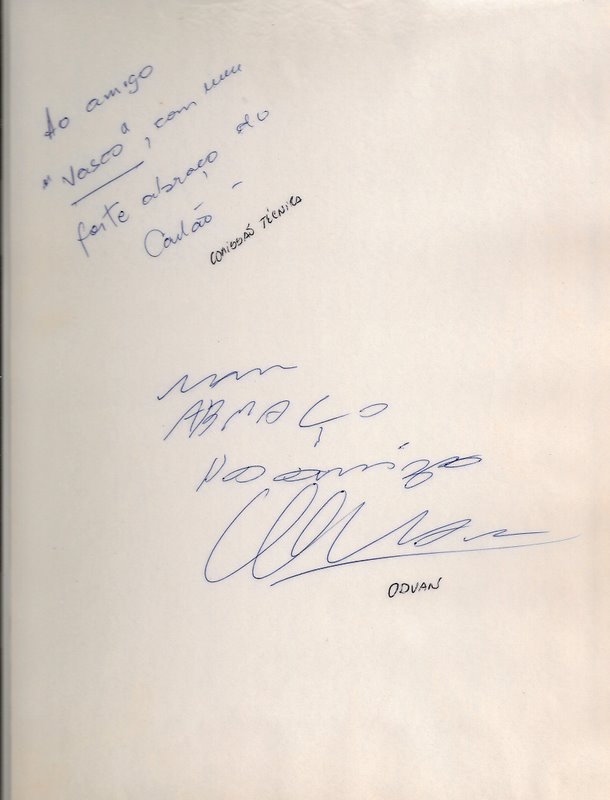 Ao amigo
"Vasco", com um
forte abraço do
Carlão -
COMISSÃO TÉCNICA
um
ABRAÇO
Ao amigo
ODVAN